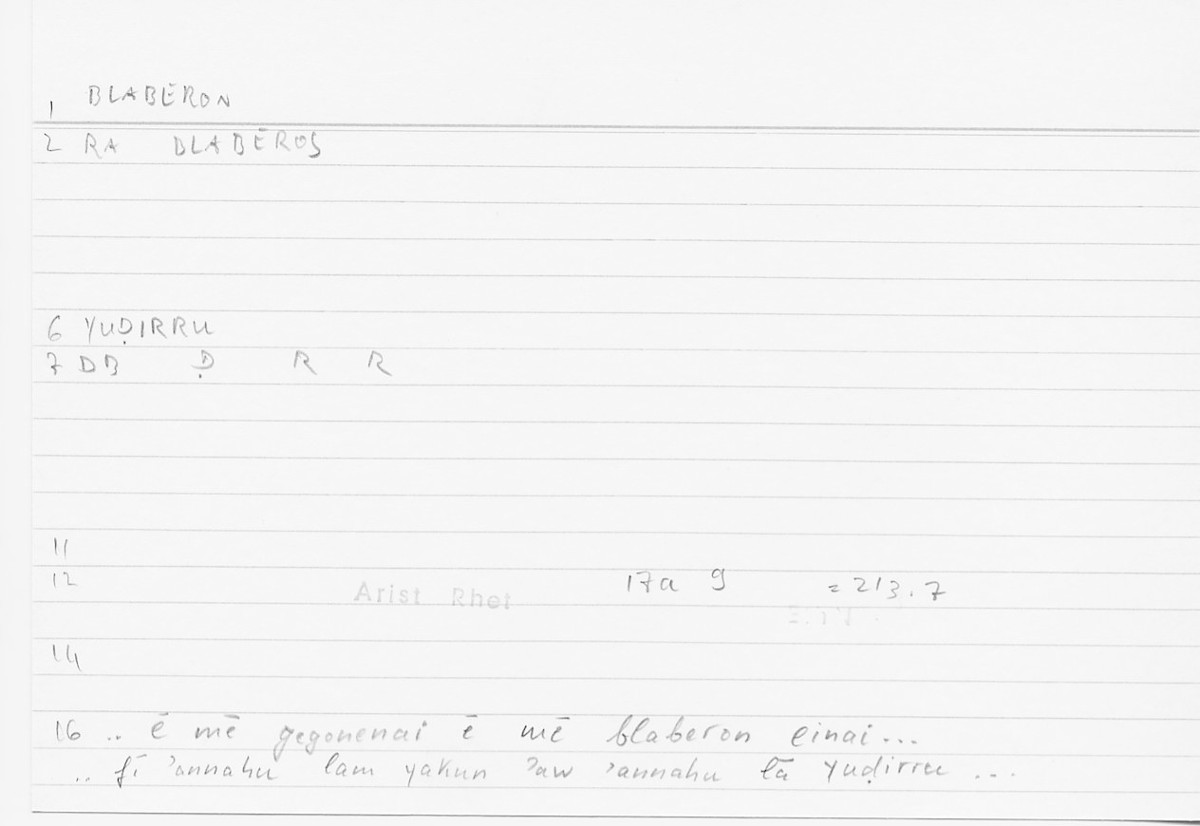 1 BLABĒRON
2 RA BLABĒROS
6 YUḌIRRU
7 DB Ḍ R R
11
12 Arist Rhet 17a 9 = 213.7
14
16 .. ē mē gegonenai ē mē blaberon einai...
.. fī ʾannahu lam yakun ʾaw ʾannahu lā yuḍirru ...